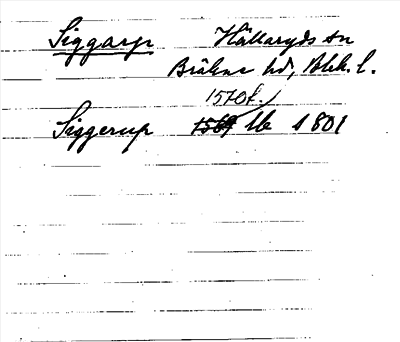 Siggarp Hällaryds sn
Bräkne hd, Blek. l.
1570f.
Siggerup 1569 Ub s 801